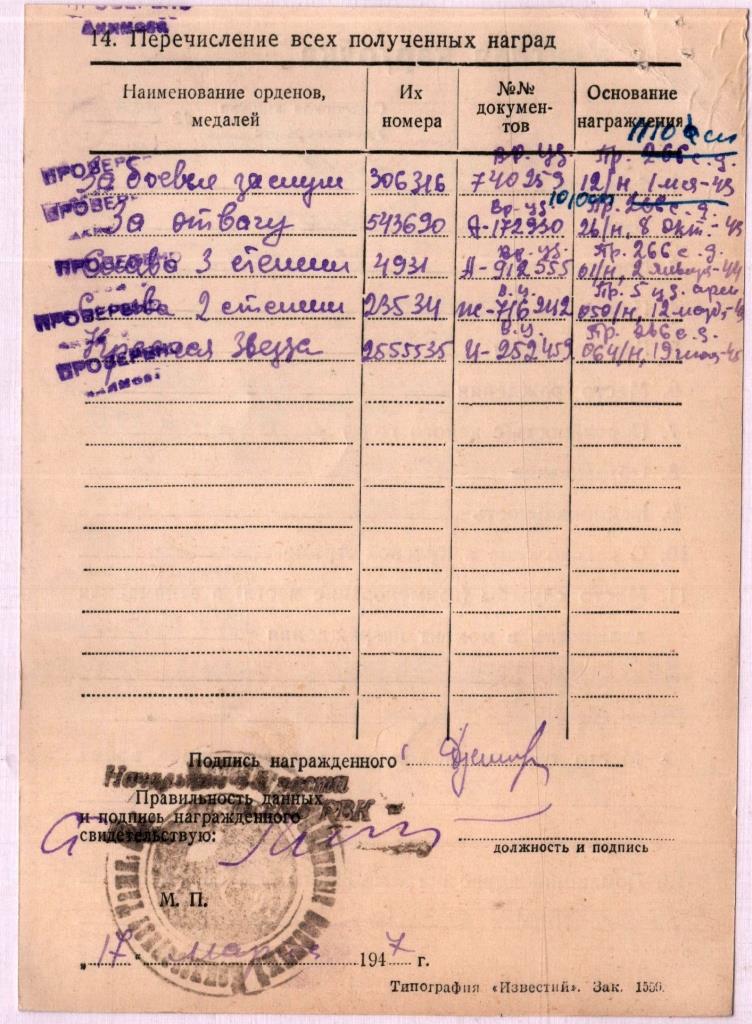 ПРОВЕРЕНО
14. Перечисление всех полученных наград
Наименование орденов, медалей
Их номера
№№ документов
Основание награждения
Вр. уд. Пр. 266 с. д.
ПРОВЕРЕНО За боевые заслуги 306316 740259 12/н, 1 мая-43
Вр. уд. Пр. 266 с. д.
ПРОВЕРЕНО За отвагу 543690 А-172930 26/н, 8 окт.-43
Вр. уд. Пр. 266 с. д.
ПРОВЕРЕНО Слава 3 степени 4931 А-912555 01/н, 2 января-44
В. у. Пр. 5 уд. арм
ПРОВЕРЕНО Слава 2 степени 23534 ж-716942 050/н, 12
В. у. Пр. 266 с. д.
ПРОВЕРЕНО Красная Звезда 2555535 И-252459 064/н, 19 мая-45
Подпись награжденного
Правильность данных
и подпись награжденного
свидетельствую:
должность и подпись
М. П.
„17“ марта 1947 г.
Типография «Известий». Зак. 1550.